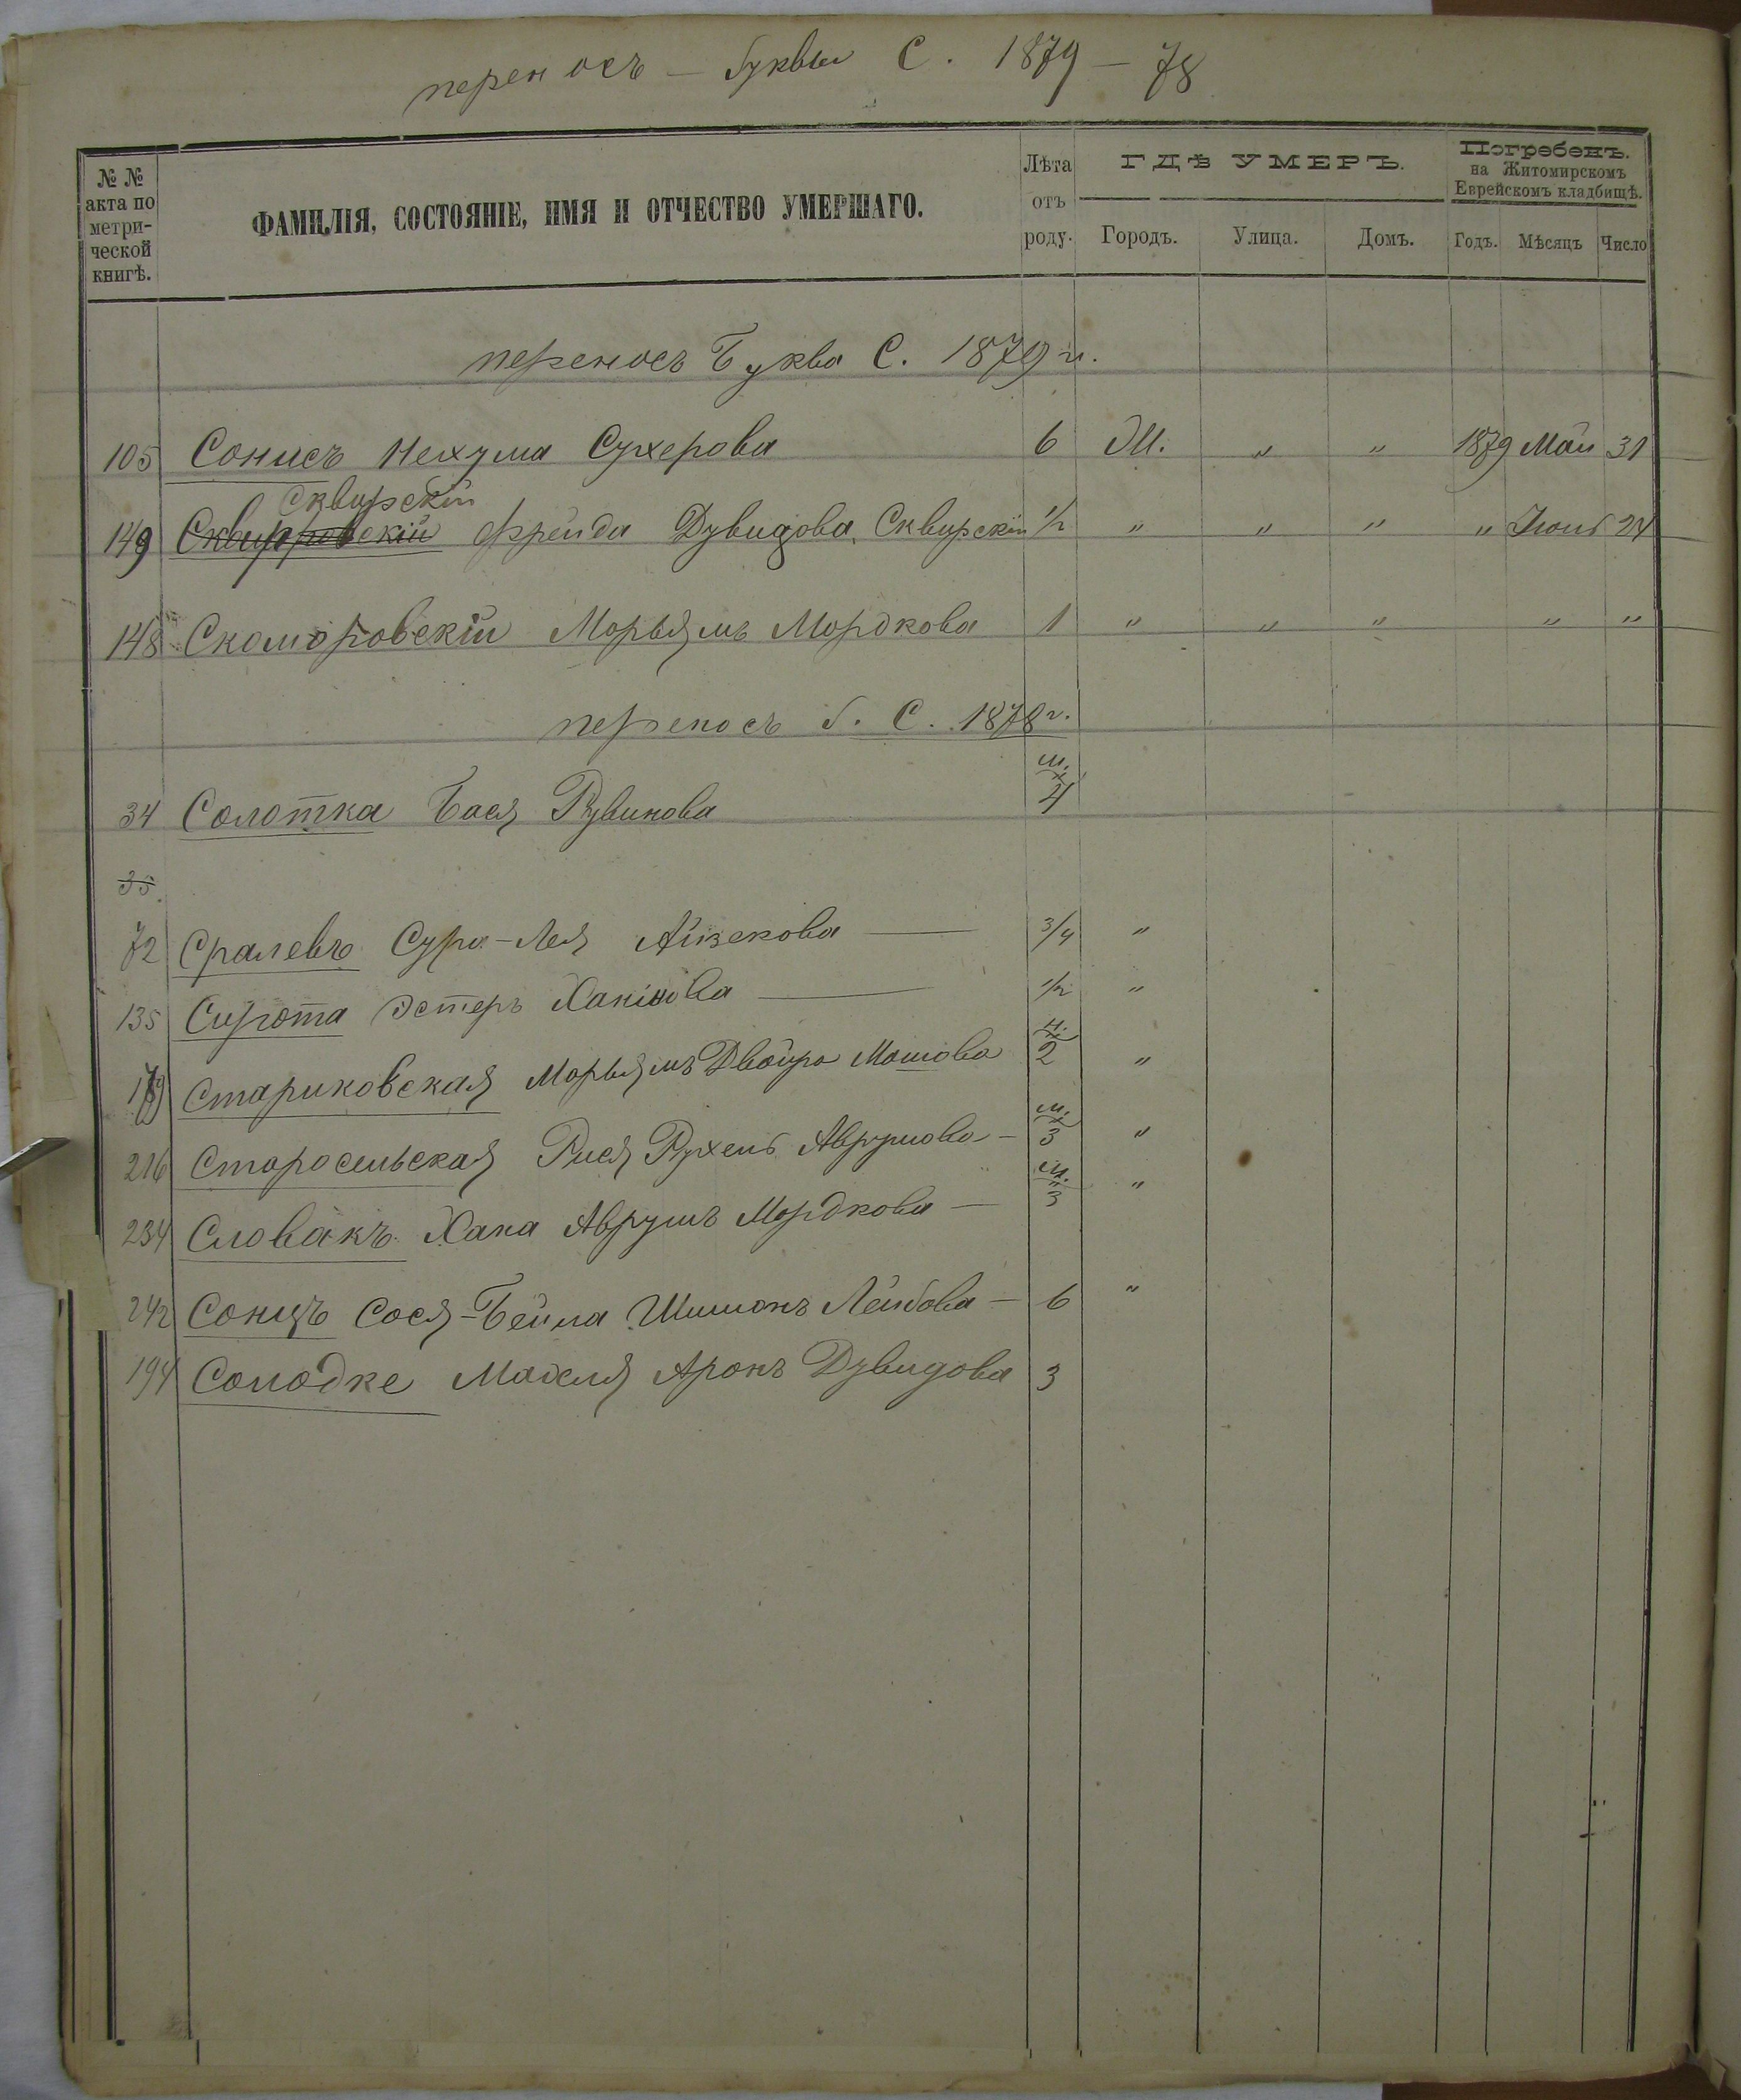 переносъ — буквы С. 1879 — 78
№ №
акта по
метри-
ческой
книгѣ.
ФАМИЛІЯ, СОСТОЯНІЕ, ИМЯ И ОТЧЕСТВО УМЕРШАГО.
Лѣта
отъ
роду.
ГДѢ УМЕРЪ.
Городъ. Улица. Домъ.
Погребенъ.
на Житомирскомъ
Еврейскомъ кладбищѣ.
Годъ. Мѣсяцъ Число
переносъ Буква С. 1879 г.
105 Сонисъ Нехума Сухерова 6 Ж. " " 1879 Май 31
Сквирскій
149 Сквировскій Фрейда Дувидова Сквирскій 1/2 " " " " Іюнь 24
148 Скоморовскій Морьямъ Мордкова 1 " " " " "
переносъ б. С. 1878 г.
34 Солотка Бася Рувинова м. 4
35
72 Сралевъ Сура-Лея Айзекова — 3/4 "
135 Сирота Эстеръ Хаківова — 1/2 "
179 Стариковская Морьямъ Двойра Мошова 2 "
216 Старосельская Рися Рухель Аврумова — м. 3 "
234 Словакъ Хана Аврумъ Мордкова — м. 3 "
242 Сонцъ Сося-Бейла Шимонъ Лейбова — 6 "
194 Солодке Маселя Аронъ Дувидова 3